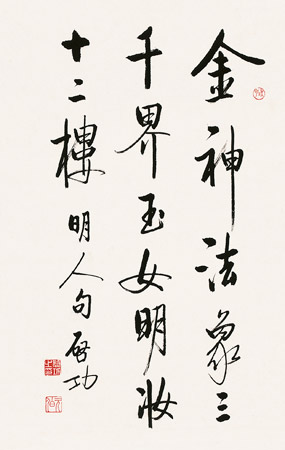 金神法象三
千界玉女明妝
十二樓 明人句 啓功